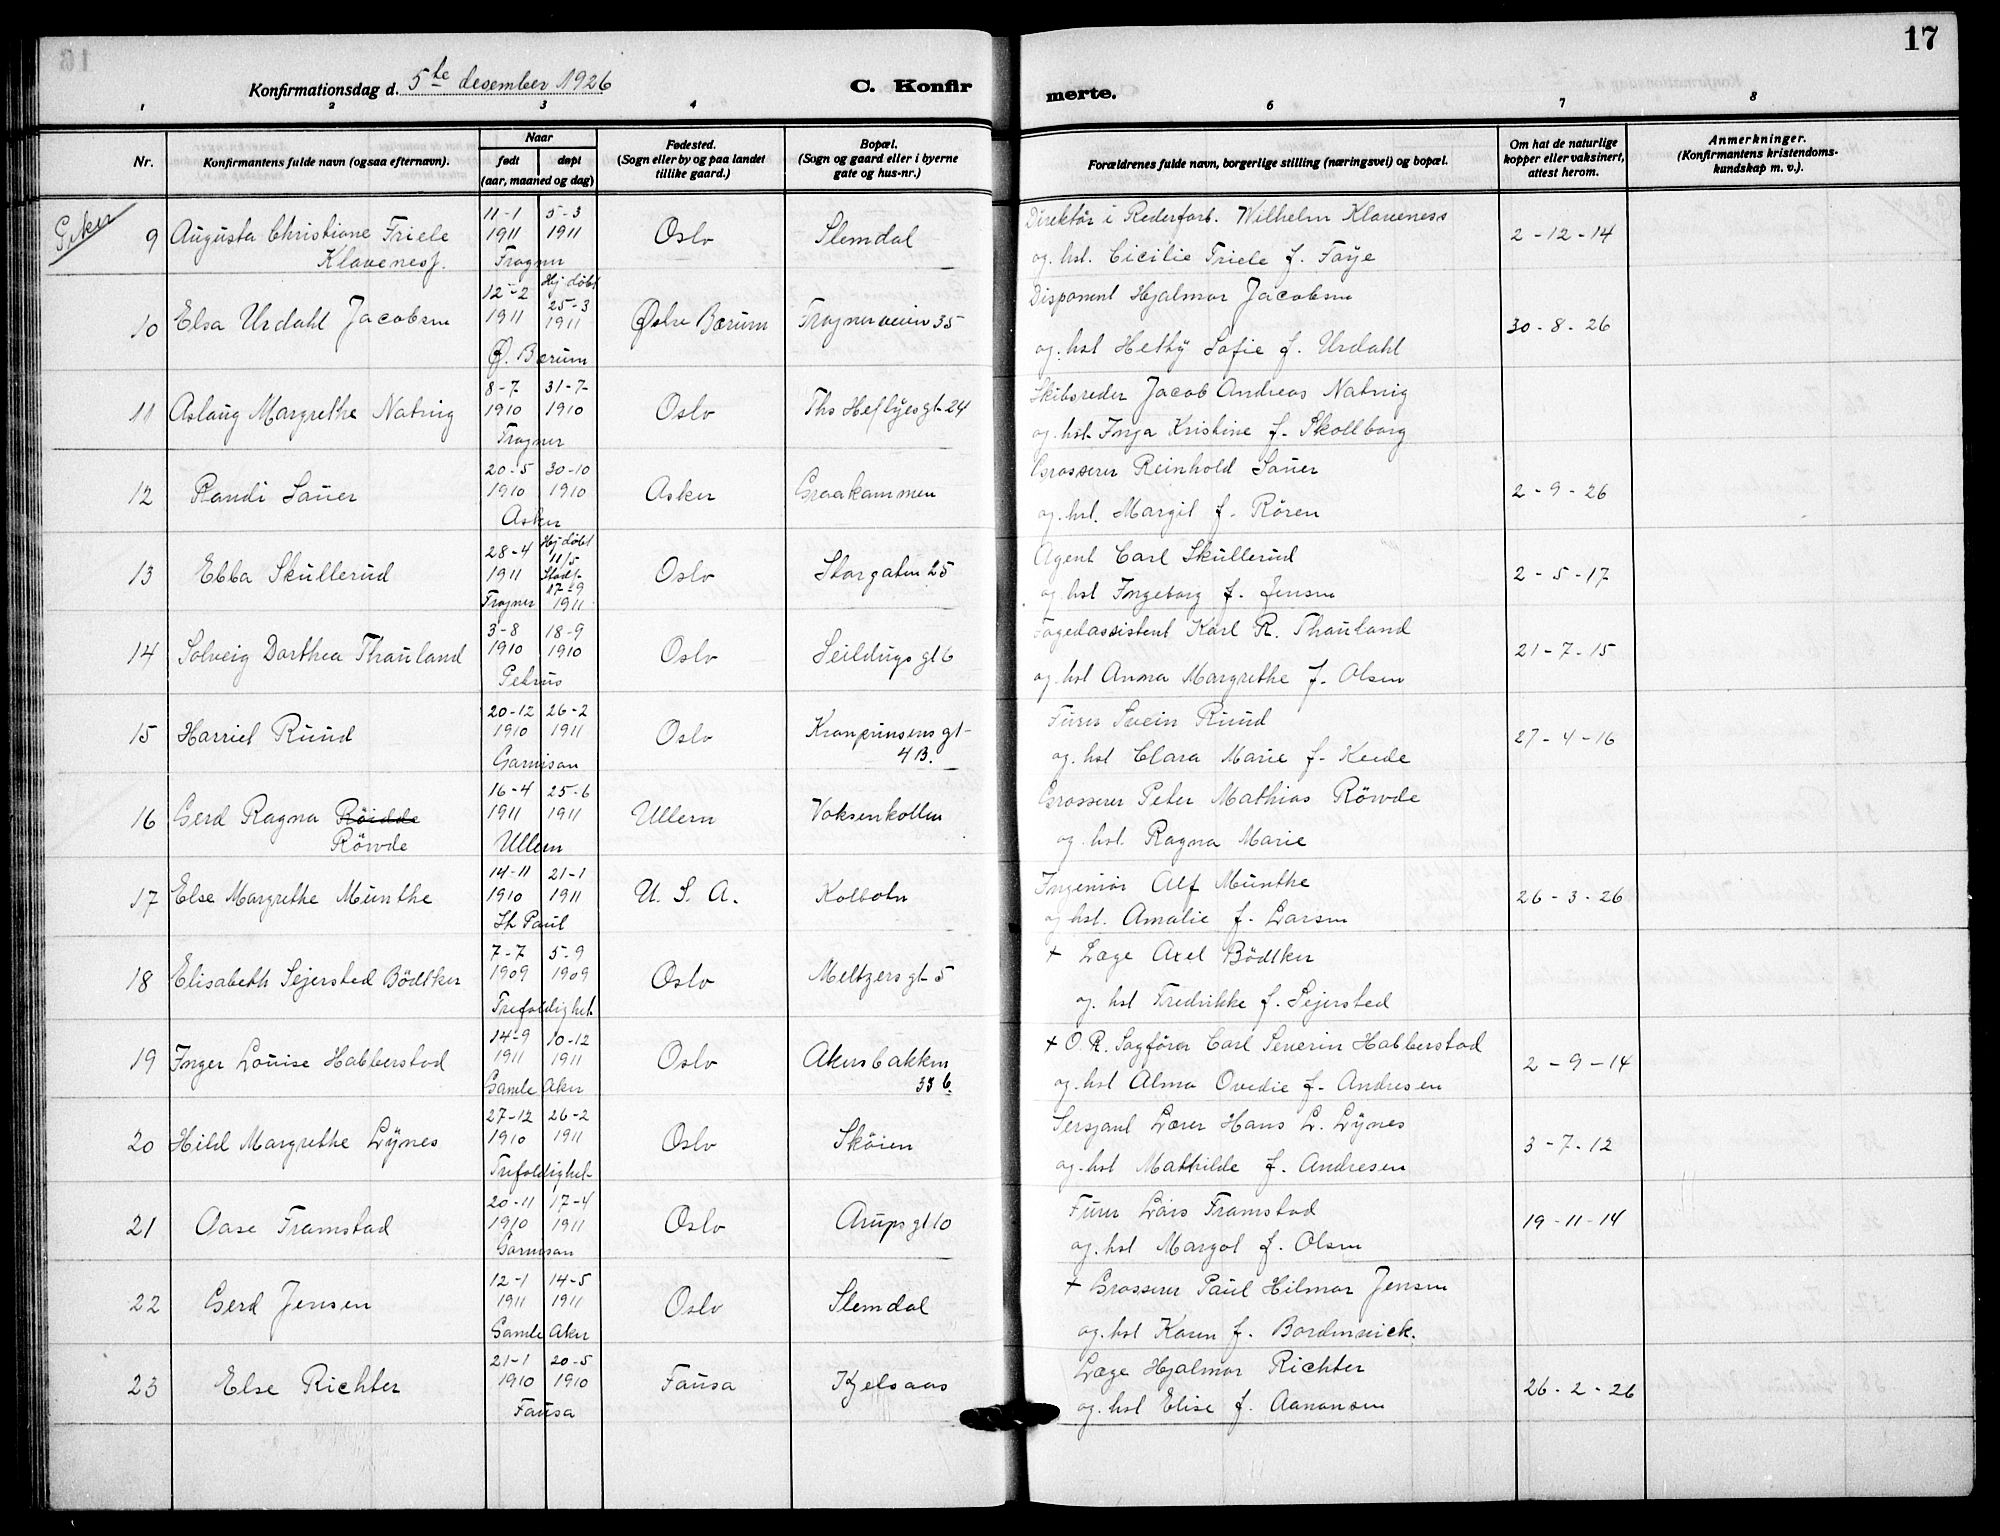 17
Konfirmationsdag d. 5te desember 1926
C. Konfir
merte.
1 2 3 4 6 7 8
Nr.
Konfirmantens fulde navn (ogsaa efternavn).
Naar
født
døpt
(aar, maaned og dag)
Fødested.
(Sogn eller by og paa landet
tillike gaard.)
Bopæl.
(Sogn og gaard eller i byerne
gate og hus-nr.)
Forældrenes fulde navn, borgerlige stilling (næringsvei) og bopæl.
Om hat de naturlige
kopper eller vaksinert,
attest herom.
Anmerkninger.
(Konfirmantens kristendoms-
kundskap m. v.).
Piker
9 Augusta Christiane Friele
Klaveness.
11-1 5-3
1911 1911
Frogner
Oslo
Slemdal
Direktør i Rederforb. Wilhelm Klaveness
og. hst. Cicilie Friele f. Faye
2-12-14
10 Elsa Urdahl Jacobsen
12-2 Hj. døbt
25-3
1911 1911
Ø. Bærum
Østre Bærum
Frognerveien 35
Disponent Hjalmar Jacobsen
og. hst Hethy Sofie f. Urdahl
30-8-26
11 Aslaug Margrethe Natvig
8-7 31-7
1910 1910
Frogner
Oslo
Ths Heftyesgt 24
Skibsreder Jacob Andreas Natvig
og. hst. Inga Kristine f. Skollborg
12 Randi Sauer
20-5 30-10
1910 1910
Asker
Asker
Graakammen
Grosserer Reinhold Sauer
og. hst. Margit f. Røren
2-9-26
13 Ebba Skullerud
28-4 Hj døbt
11/5
1911 Stadf.
17-9
Frogner 1911
Oslo
Storgaten 25
Agent Carl Skullerud
og hst Ingeborg f. Jensen
2-5-17
14 Solveig Dorthea Thauland
3-8 18-9
1910 1910
Petrus
Oslo
Seildugsgt 6
Fogedassistent Karl R. Thauland
og. hst Anna Margrethe f. Olsen
21-7-15
15 Harriet Ruud
20-12 26-2
1910 1911
Garnison
Oslo
Kronprinsensgt
4 B.
Furer Svein Ruud
og. hst Clara Marie f.
27-4-16
16 Gerd Ragna Röidde
Rövde
16-4 25-6
1911 1911
Ullern
Ullern
Voksenkollen
Grosserer Peter Mathias Rövde
og. hst. Ragna Marie
17 Else Margrethe Munthe
14-11 21-1
1910 1911
St Paul
U. S. A.
Kolbotn
Ingeniør Alf Munthe
og hst. Amalie f. Larsen
26-3-26
18 Elisabeth Sejersted Bödtker
7-7 5-9
1909 1909
Trefoldighet
Oslo
Meltzersgt 5
+ Læge Axel Bödtker
og. hst Fredrikke f. Sejersted
19 Inger Louise Habberstad
14-9 10-12
1911 1911
Gamle Aker
Oslo
Akersbakken
33 b.
+ O. R. Sagfører Carl Severin Habberstad
og. hst Alma Ovedie f. Andresen
2-9-14
20 Hild Margrethe Lynes
27-12 26-2
1910 1911
Trefoldighet
Oslo
Skøien
Sersjant Lærer Hans L. Lynes
og. hst Mathilde f. Andresen
3-7-12
21 Aase Framstad
20-11 17-4
1910 1911
Garnison
Oslo
Arupsgt 10
Furer Lars Framstad
og. hst Margot f. Olsen
19-11-14
22 Gerd Jensen
12-1 14-5
1911 1911
Gamle Aker
Oslo
Slemdal
+ Grosserer Paul Hilmar Jensen
og. hst Karen f.
23 Else Richter
21-1 20-5
1910 1910
Fausa
Fausa
Kjelsaas
Læge Hjalmar Richter
og. hst Elise f. Aanonsen
26-2-26